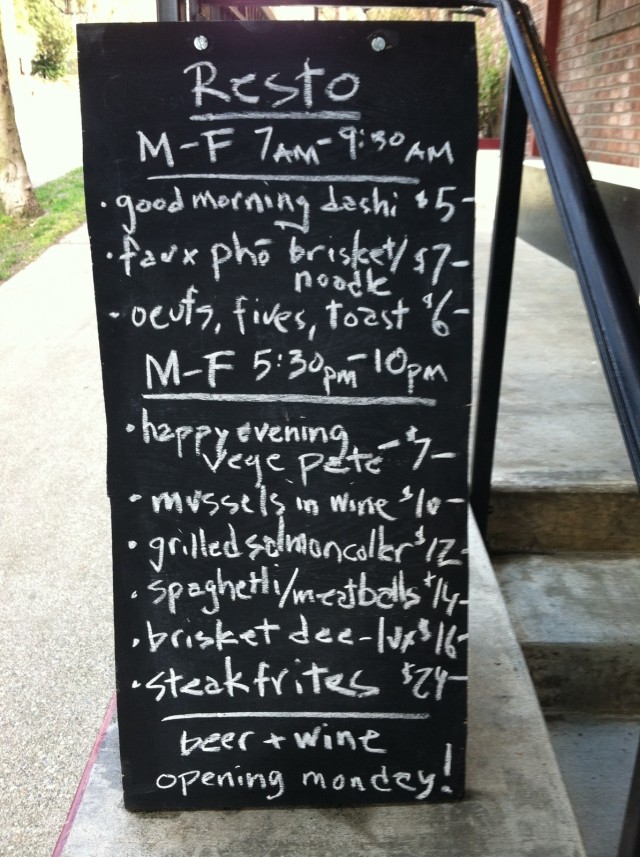 Resto
M-F 7AM-9:30AM
• good morning dashi $5-
• faux phō brisket/ $7-
noodle
• oeufs, fives, toast $6-
M-F 5:30pm-10pm
• happy evening
vege pate - $7-
• mussels in wine $10-
• grilled salmon coller $12-
• spaghetti/meatballs $14-
• brisket dee-lux $16-
• steak frites $24-
beer + wine
opening monday!